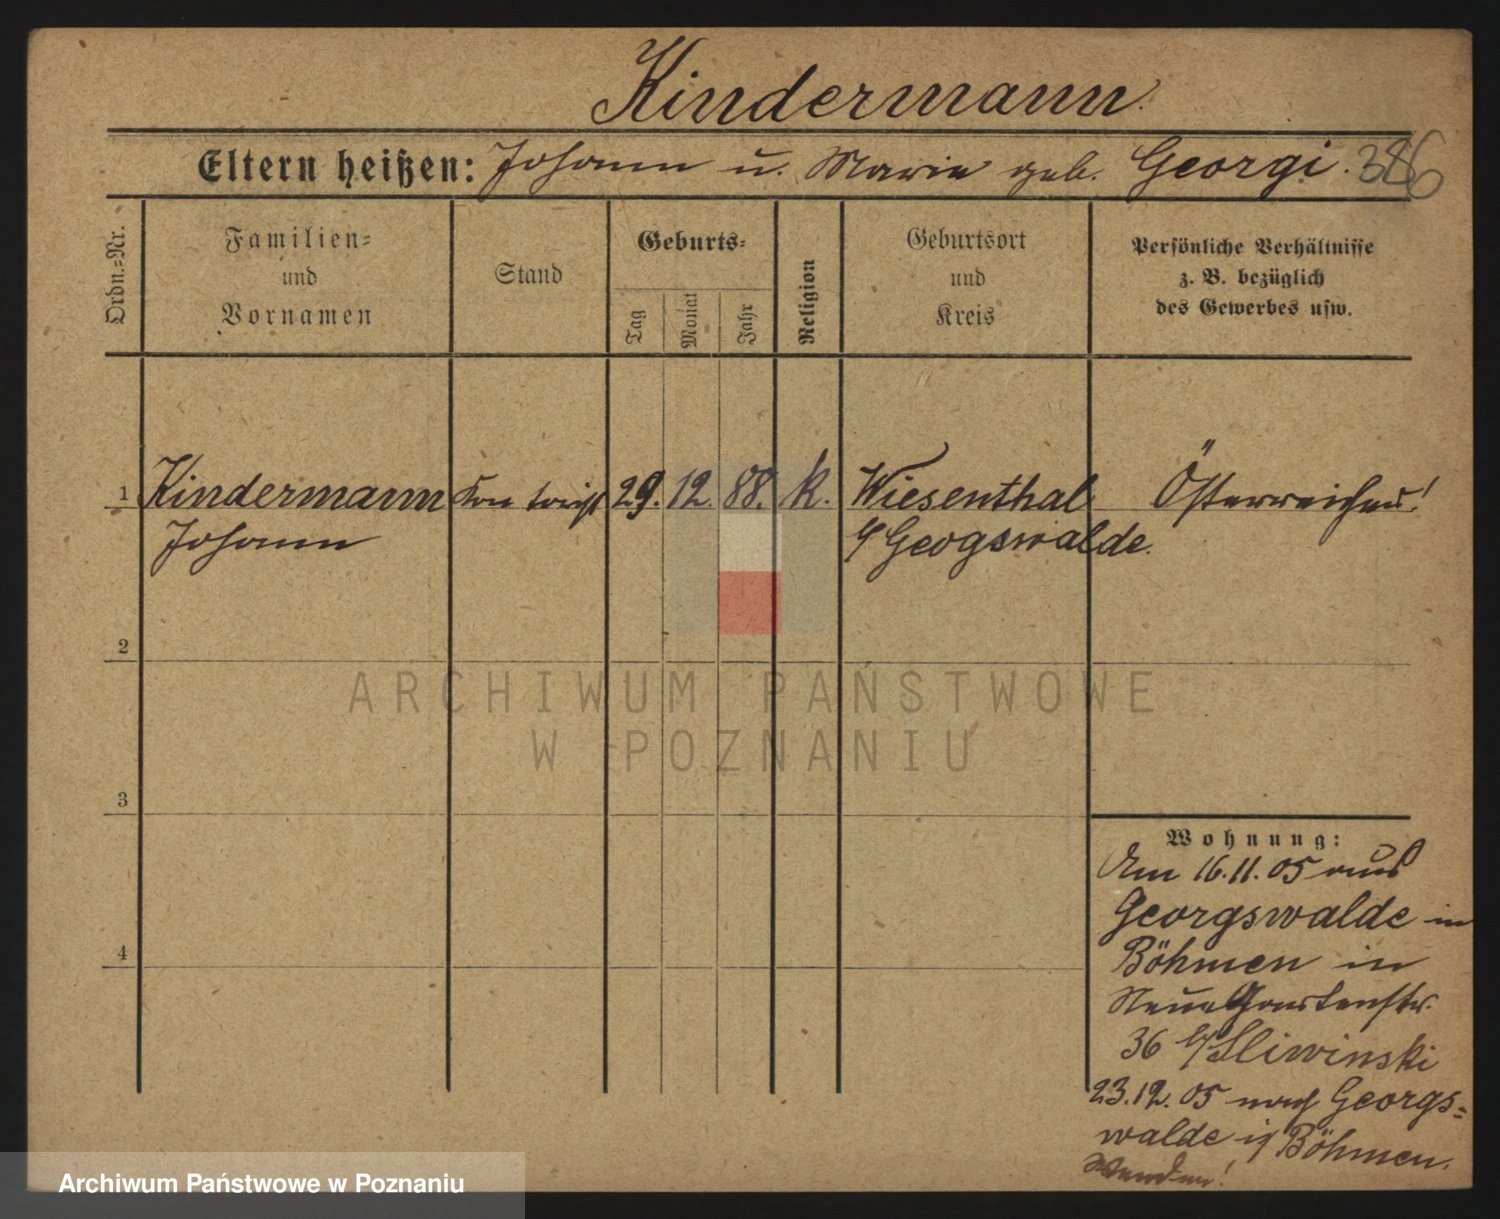 Kindermann.
Eltern heißen: Johann u. Marie geb. Georgi. 386
Ordn.=Nr.
Familien=
und
Vornamen
Stand
Geburts=
Tag
Monat
Jahr
Religion
Geburtsort
und
Kreis
Persönliche Verhältnisse
z. B. bezüglich
des Gewerbes usw.
1 Kindermann 29. 12. 88. k. Wiesenthal Österreicher!
Johann b/Geogswalde.
2
3
4
Wohnung:
Am 16.11.05 aus
Georgswalde in
Böhmen in
Neue Gartenstr.
36 b/Sliwinski
23.12.05 nach Georgs=
walde i/ Böhmen.
Wenden!
ARCHIWUM PAŃSTWOWE
W POZNANIU
Archiwum Państwowe w Poznaniu